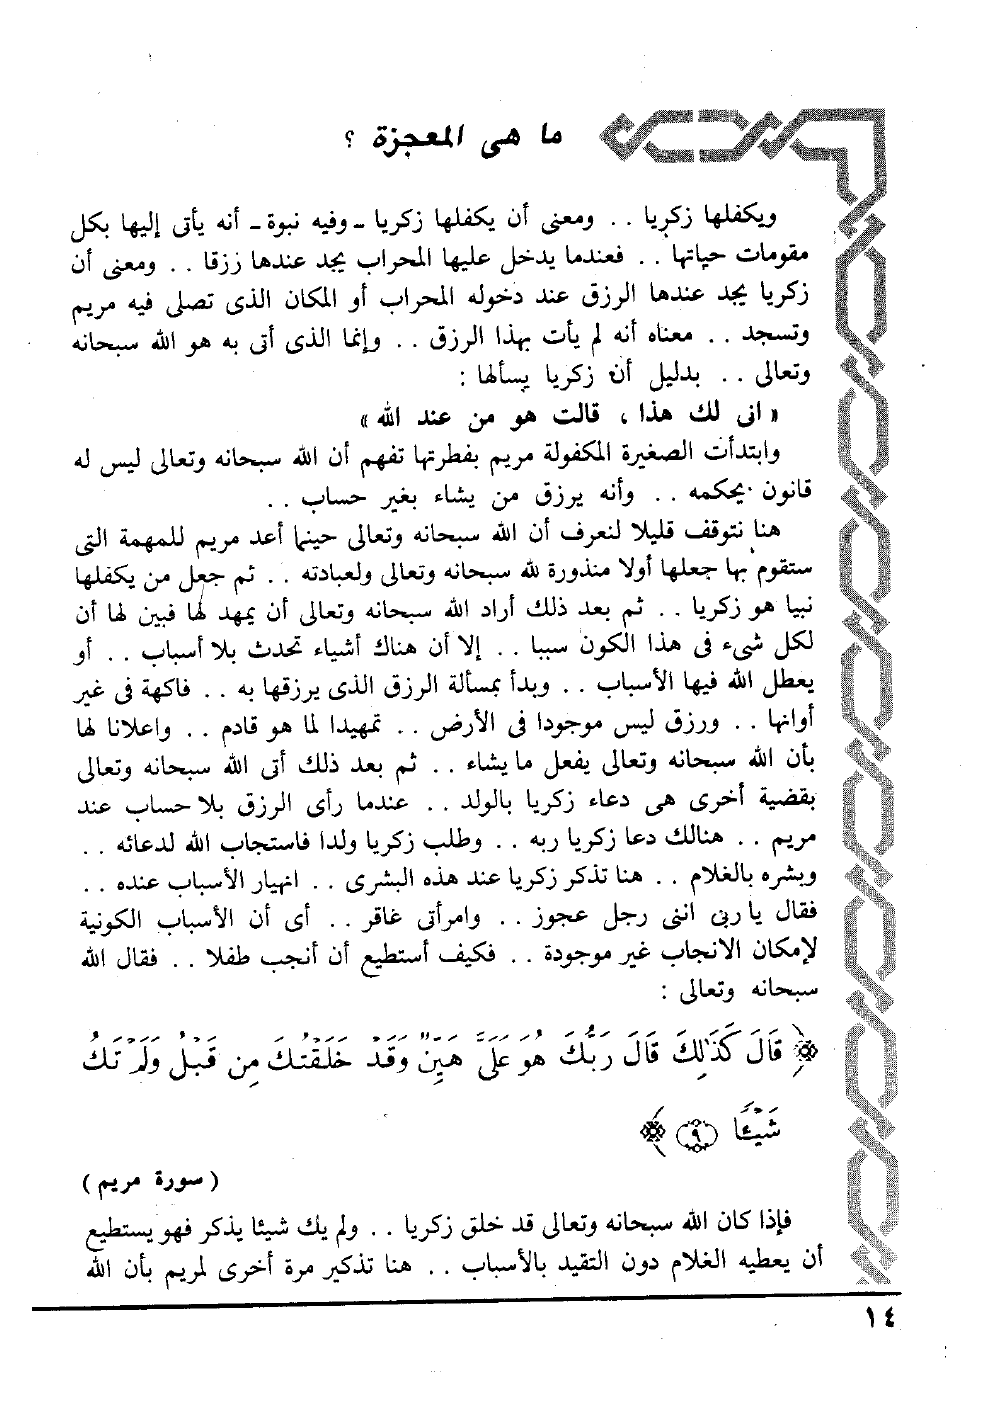 ما هى المعجزة ؟
ويكفلها زكريا . . ومعنى أن يكفلها زكريا ـ وفيه نبوة ـ أنه يأتى إليها بكل
مقومات حياتها . . فعندما يدخل عليها المحراب يجد عندها رزقا . . ومعنى أن
زكريا يجد عندها الرزق عند دخوله المحراب أو المكان الذى تصلى فيه مريم
وتسجد . . معناه أنه لم يأت بهذا الرزق . . وإنما الذى أتى به هو الله سبحانه
وتعالى . . بدليل أن زكريا يسألها :
« انى لك هذا ، قالت هو من عند الله »
وابتدأت الصغيرة المكفولة مريم بفطرتها تفهم أن الله سبحانه وتعالى ليس له
قانون يحكمه . . وأنه يرزق من يشاء بغير حساب . .
هنا نتوقف قليلا لنعرف أن الله سبحانه وتعالى حينما أعد مريم للمهمة التى
ستقوم بها جعلها أولا منذورة لله سبحانه وتعالى ولعبادته . . ثم جعل من يكفلها
نبيا هو زكريا . . ثم بعد ذلك أراد الله سبحانه وتعالى أن يمهد لها فبين لها أن
لكل شىء فى هذا الكون سببا . . إلا أن هناك أشياء تحدث بلا أسباب . . أو
يعطل الله فيها الأسباب . . وبدأ بمسألة الرزق الذى يرزقها به . . فاكهة فى غير
أوانها . . ورزق ليس موجودا فى الأرض . . تمهيدا لما هو قادم . . واعلانا لها
بأن الله سبحانه وتعالى يفعل ما يشاء . . ثم بعد ذلك أتى الله سبحانه وتعالى
بقضية أخرى هى دعاء زكريا بالولد . . عندما رأى الرزق بلا حساب عند
مريم . . هنالك دعا زكريا ربه . . وطلب زكريا ولدا فاستجاب الله لدعائه . .
وبشره بالغلام . . هنا تذكر زكريا عند هذه البشرى . . انهيار الأسباب عنده . .
فقال يا ربى اننى رجل عجوز . . وامرأتى عاقر . . أى أن الأسباب الكونية
لإمكان الانجاب غير موجودة . . فكيف أستطيع أن أنجب طفلا . . فقال الله
سبحانه وتعالى :
﴿ قَالَ كَذَٰلِكَ قَالَ رَبُّكَ هُوَ عَلَىَّ هَيِّنٌ وَقَدْ خَلَقْتُكَ مِن قَبْلُ وَلَمْ تَكُ
شَيْـًٔا ٩ ﴾
( سورة مريم )
فإذا كان الله سبحانه وتعالى قد خلق زكريا . . ولم يك شيئا يذكر فهو يستطيع
أن يعطيه الغلام دون التقيد بالأسباب . . هنا تذكير مرة أخرى لمريم بأن الله
١٤